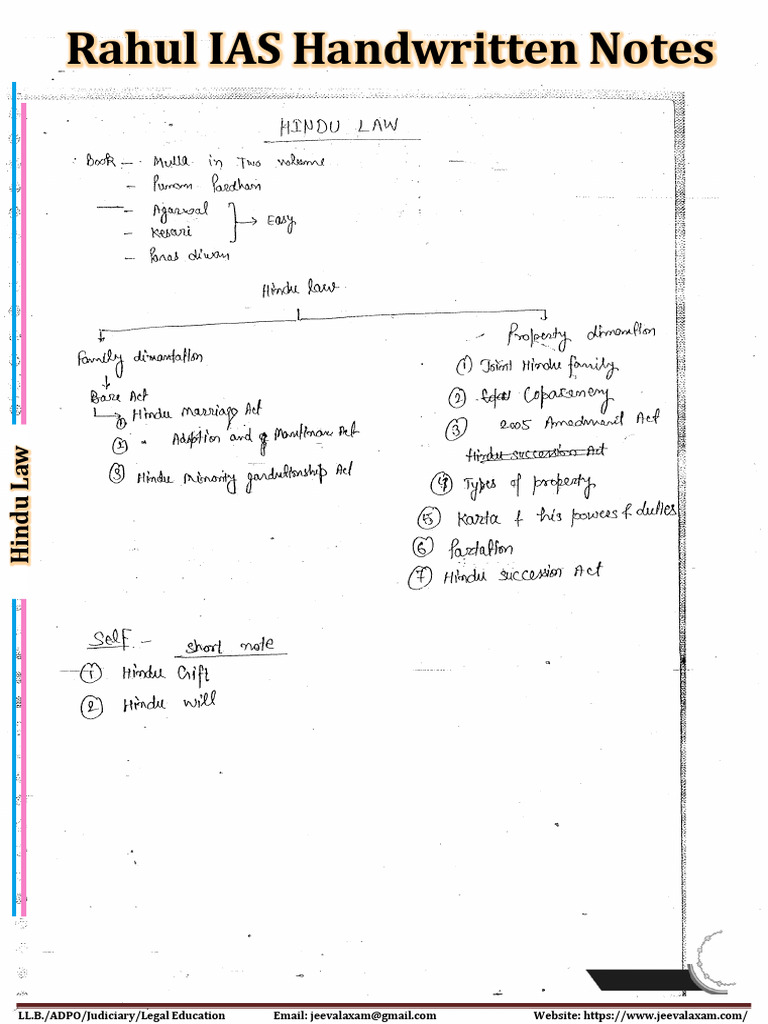 Rahul IAS Handwritten Notes
HINDU LAW
Book - Mulla in Two volume
- Punam Pardhan
- Agarwal
- Kesari
Easy
- Paras diwan
Hindu law
Family dimantation
Bare Act
① Hindu Marriage Act
② " Adoption and Mantinanc Act
③ Hindu Minority gardultonship Act
- Property dimention
① Joint Hindu family
② Coparceny
③ 2005 Amedment Act
Hindu succession Act
④ Types of property
⑤ Karta & his powers & duties
⑥ Partation
⑦ Hindu succession Act
Self - short note
① Hindu Gift
② Hindu will
Hindu Law
LL.B./ADPO/Judiciary/Legal Education Email: jeevalaxam@gmail.com Website: https://www.jeevalaxam.com/